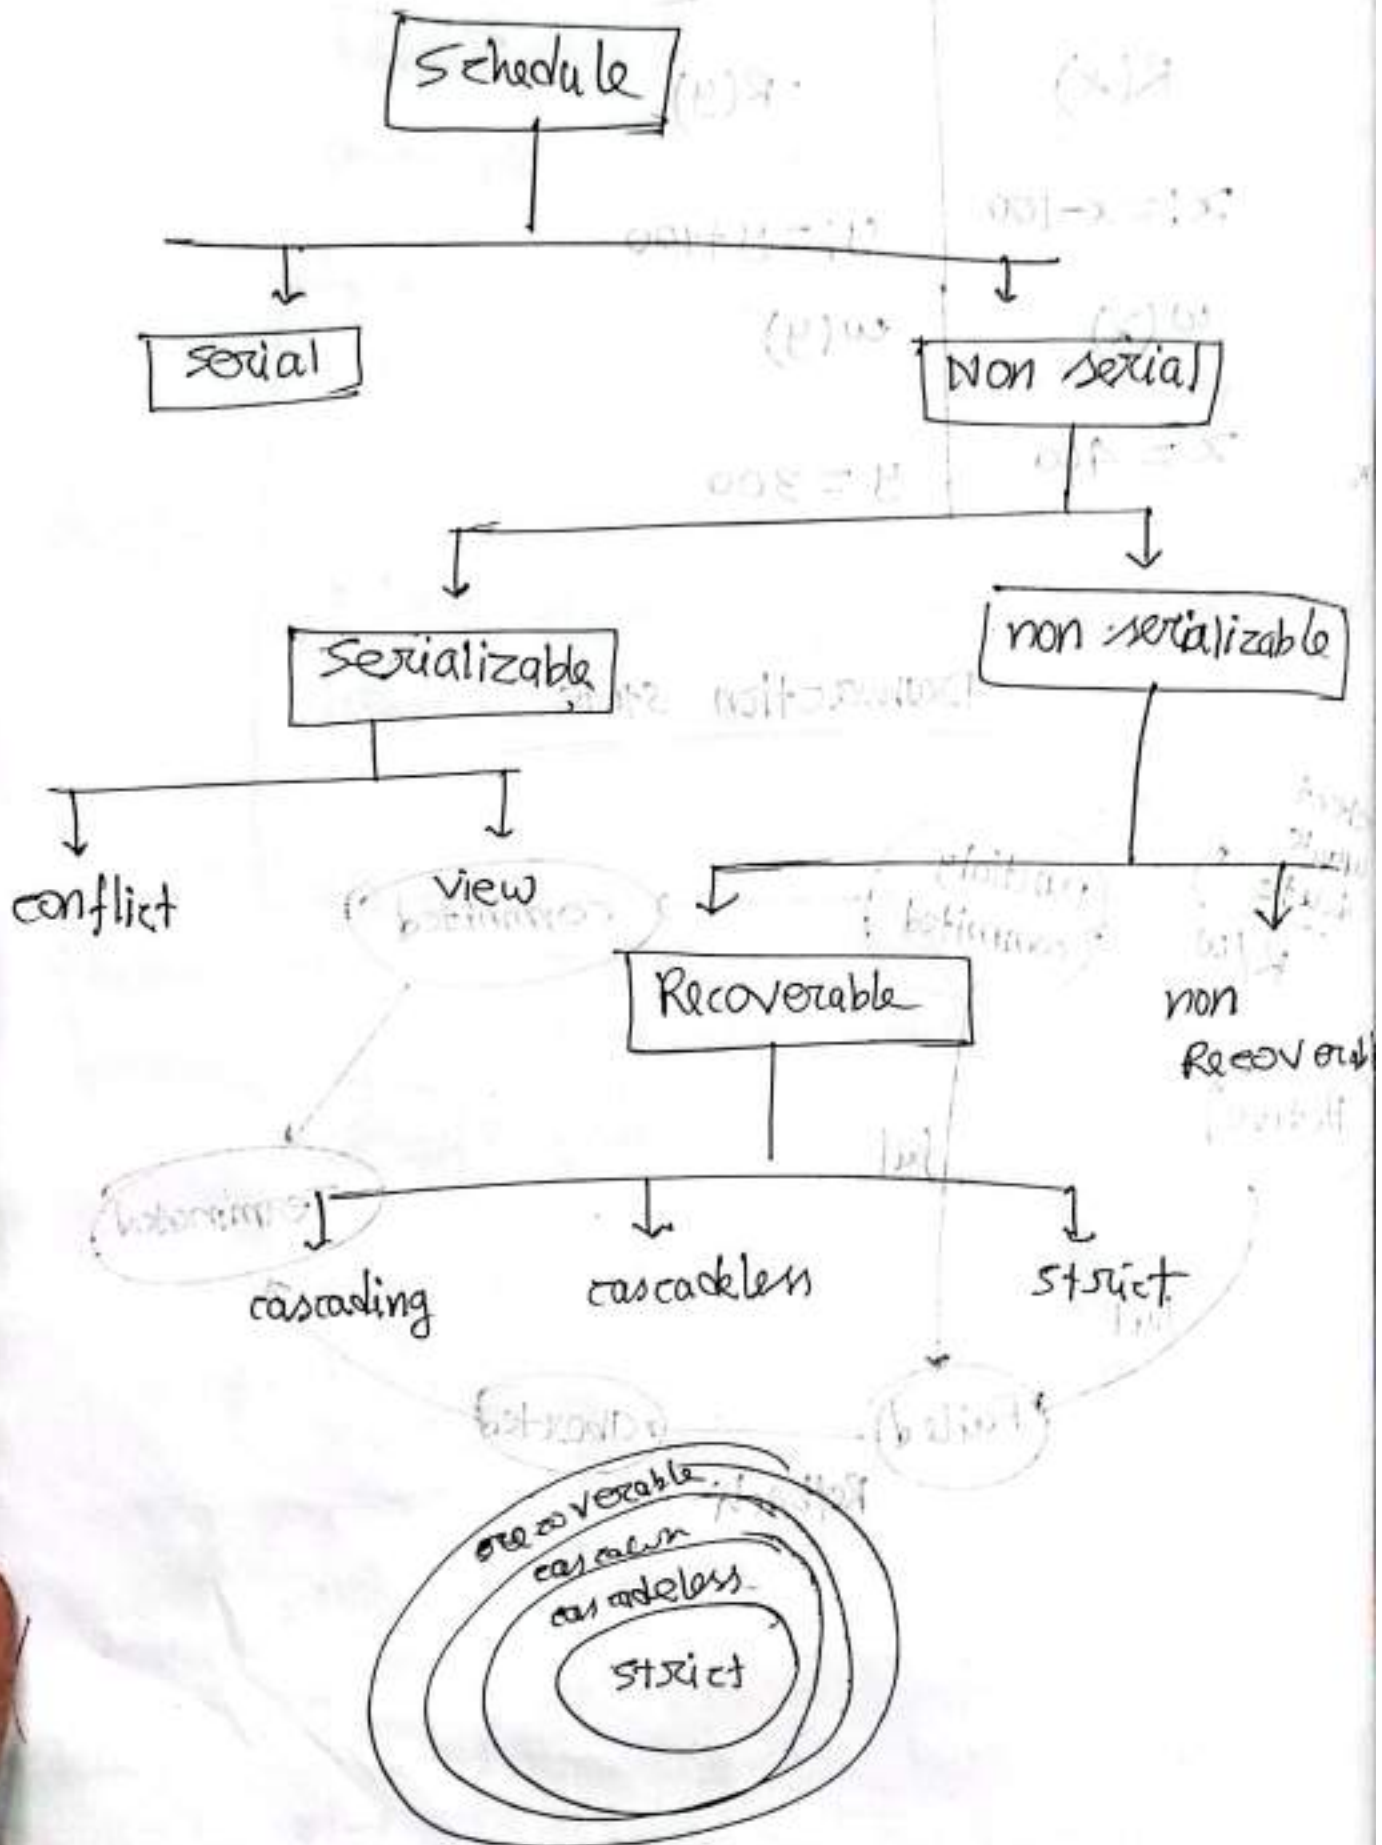 Schedule
serial
Non serial
Serializable
non serializable
conflict
view
Recoverable
non
Recoverab
cascading
cascadeless
strict
recoverable
cascadeless
strict